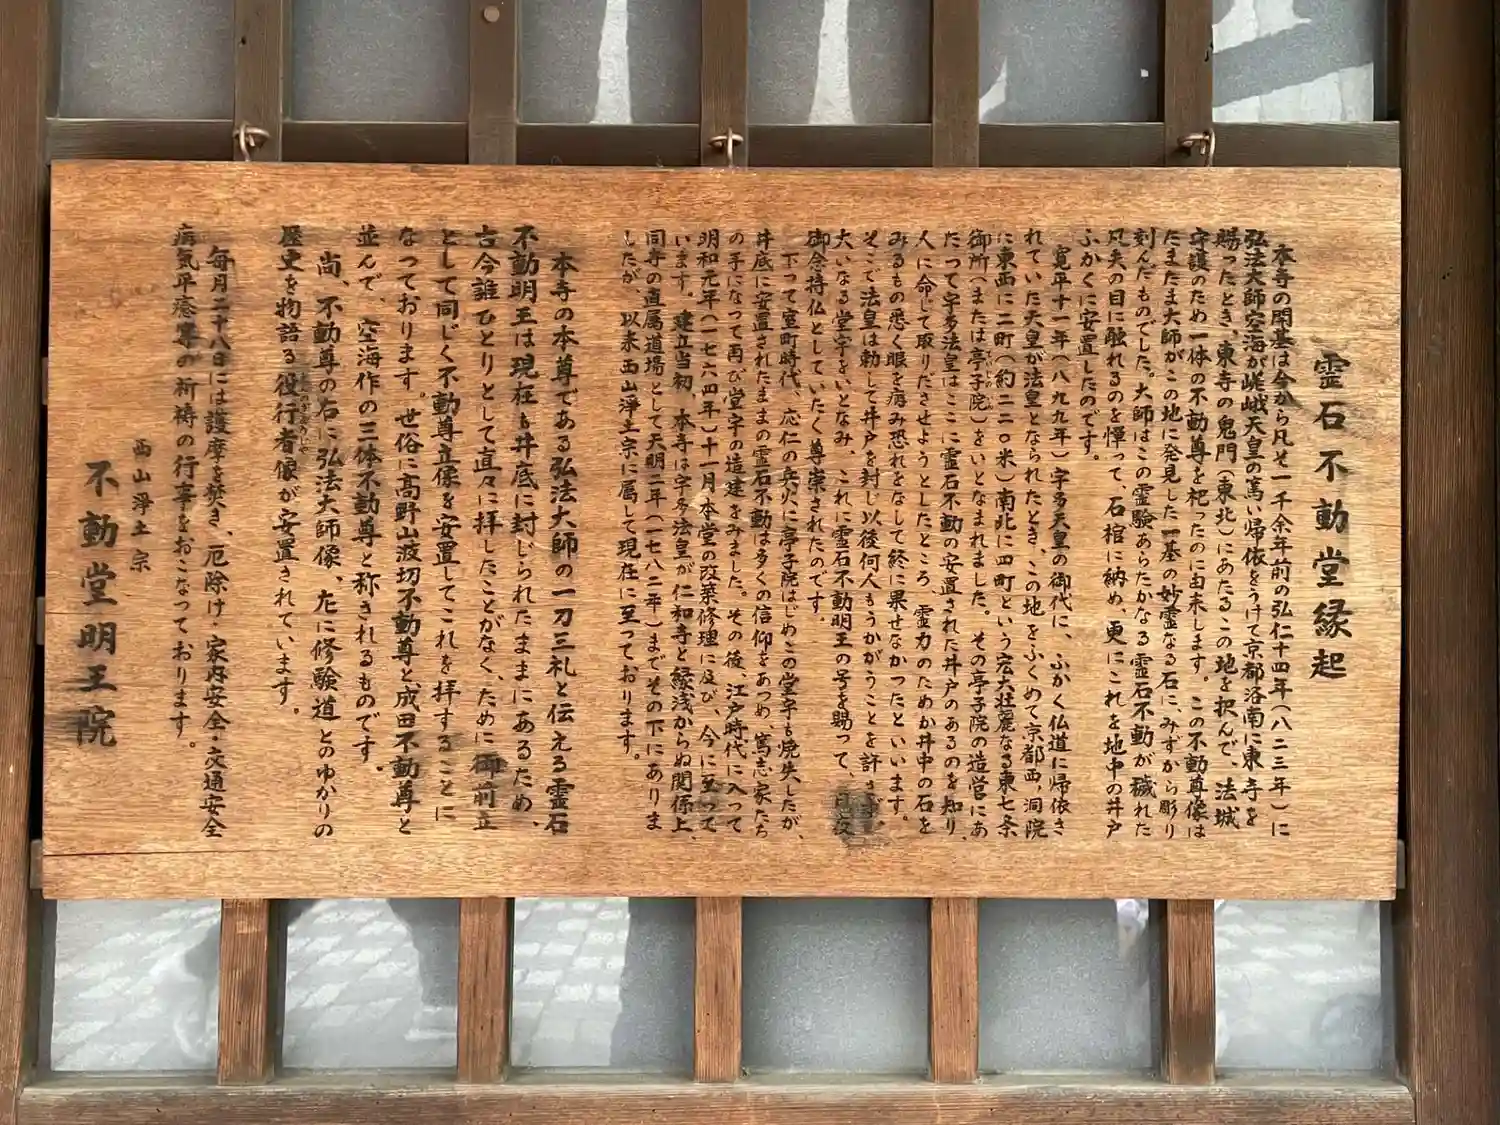 霊石不動堂縁起
本寺の開基は今から凡そ一千余年前の弘仁十四年(八二三年)に
弘法大師空海が嵯峨天皇の篤い帰依をうけて京都洛南に東寺を
賜ったとき、東寺の鬼門(東北)にあたるこの地を択んで、法城
守護のため一体の不動尊を祀ったのに由来します。この不動尊像は
たまたま大師がこの地に発見した一基の妙霊なる石に、みずから彫り
刻んだものでした。大師はこの霊験あらたかなる霊石不動が穢れた
凡夫の目に触れるのを憚って、石棺に納め、更にこれを地中の井戸
ふかくに安置したのです。
寛平十一年(八九九年)宇多天皇の御代に、ふかく仏道に帰依さ
れていた天皇が法皇となられたとき、この地をふくめて京都西洞院
に東西に二町(約二二〇米)南北に四町という宏大壮麗なる東七条
御所(または亭子院)をいとなまれました。その亭子院の造営にあ
ていじのいん
たって宇多法皇はここに霊石不動の安置された井戸のあるのを知り、
人に命じて取りださせようとしたところ、霊力のためか井中の石を
みるもの悉く眼を病み恐れをなして終に果せなかったといいます。
そこで法皇は勅して井戸を封じ以後何人もうかがうことを許さず、
大いなる堂宇をいとなみ、これに霊石不動明王の号を賜って、日夜
御念持仏としていたく尊崇されたのです。
下って室町時代、応仁の兵火に亭子院はじめこの堂宇も焼失したが、
井底に安置されたままの霊石不動は多くの信仰をあつめ、篤志家たち
の手になって再び堂宇の造建をみました。その後、江戸時代に入って
明和元年(一七六四年)十一月本堂の改築修理に及び、今に至って
います。建立当初、本寺は宇多法皇が仁和寺と縁浅からぬ関係上、
同寺の直属道場として天明二年(一七八二年)までその下にありま
したが、以来西山浄土宗に属して現在に至っております。
本寺の本尊である弘法大師の一刀三礼と伝える霊石
不動明王は現在も井底に封じられたままにあるため、
古今誰ひとりとして直々に拝したことがなく、ために御前立
として同じく不動尊立像を安置してこれを拝することに
なっております。世俗に高野山波切不動尊と成田不動尊と
並んで、空海作の三体不動尊と称されるものです。
尚、不動尊の右に弘法大師像、左に修験道とのゆかりの
歴史を物語る役行者像が安置されています。
えんのぎょうじゃ
毎月二十八日には護摩を焚き、厄除け・家内安全・交通安全
病気平癒等の祈祷の行事をおこなっております。
西山浄土宗
不動堂明王院